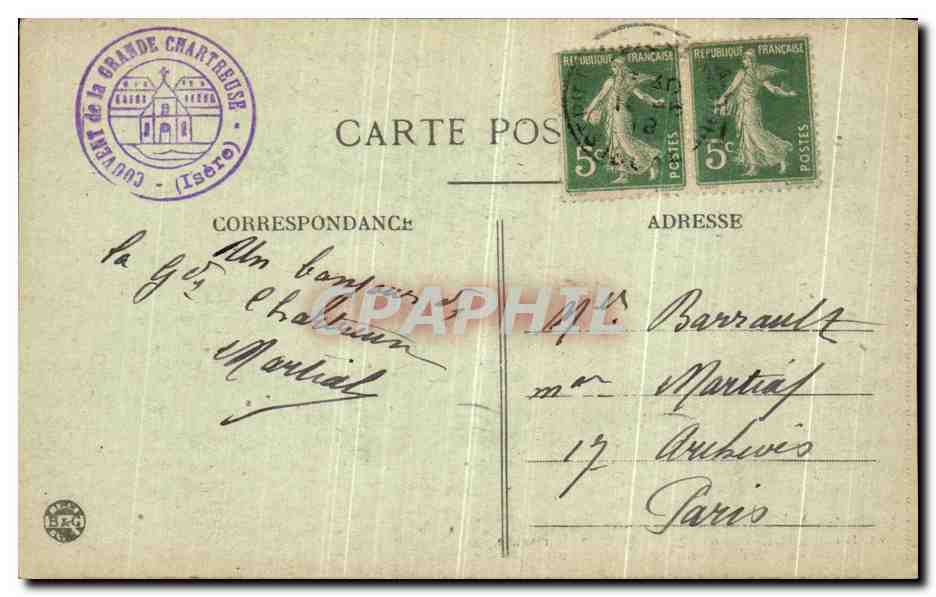 COUVENT de la GRANDE CHARTREUSE - (Isère) -
REPUBLIQUE FRANÇAISE
5c
POSTES
REPUBLIQUE FRANÇAISE
5c
POSTES
CARTE POS
CORRESPONDANCE
ADRESSE
Un bonjour de
la Gde Chartreuse
Martial
CPAPHIL
Barrault
mon Martial
17 Archives
Paris
B&G